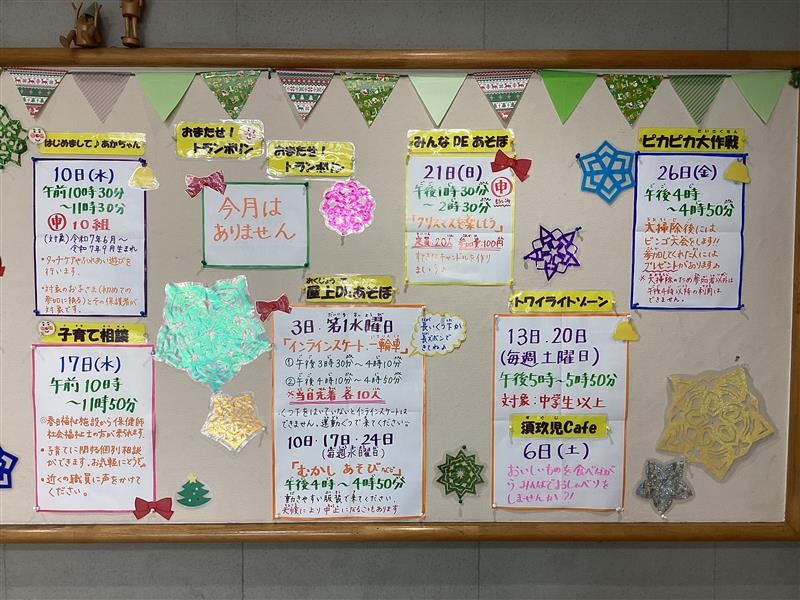 はじめまして♪あかちゃん
10日(水)
午前10時30分
～11時30分
申 10組
(対象)令和7年6月～
令和7年9月生まれ
・タッチケアやふれあい遊びを
行います。
・対象のお子さま(初めての
参加に限る)とその保護者が
対象です。
子育て相談
17日(水)
午前10時
～11時50分
◎春日福祉施設から保健師
社会福祉士の方が来られます。
・子育てに関わる個別相談
ができます。お気軽にどうぞ。
・近くの職員に声をかけて
ください。
おまたせ!
トランポリン
おまたせ!
トランポリン
今月は
ありません
おくじょう
屋上DEあそぼ
3日・第1水曜日
「インラインスケート 一輪車」
①午後3時30分～4時10分
②午後4時10分～4時50分
※当日先着 各10人
くつ下をはいていないとインラインスケートは
できません。運動ぐつで来てください。
長いくつ下か
長ズボンで
きてね♪
10日・17日・24日
(毎週水曜日)
「むかしあそびなど」
午後4時～4時50分
動きやすい服装で来てください。
天候により中止になることもあります
みんなDEあそぼ
21日(日)
午後1時30分
～2時30分
申
「クリスマスを楽しもう」
定員20人 参加費100円
すてきにキャンドルを作り
ましょう♪
トワイライトゾーン
13日.20日
(毎週土曜日)
午後5時～5時50分
対象:中学生以上
須玖児Cafe
6日(土)
おいしいものを食べながら
みんなでおしゃべりを
しませんか?!
ピカピカ大作戦
26日(金)
午後4時
～4時50分
大掃除後には
ビンゴ大会をします!!
参加してくれた人には
プレゼントがあります♪
※大掃除のため参加者以外は
午後4時以降の利用は
できません。